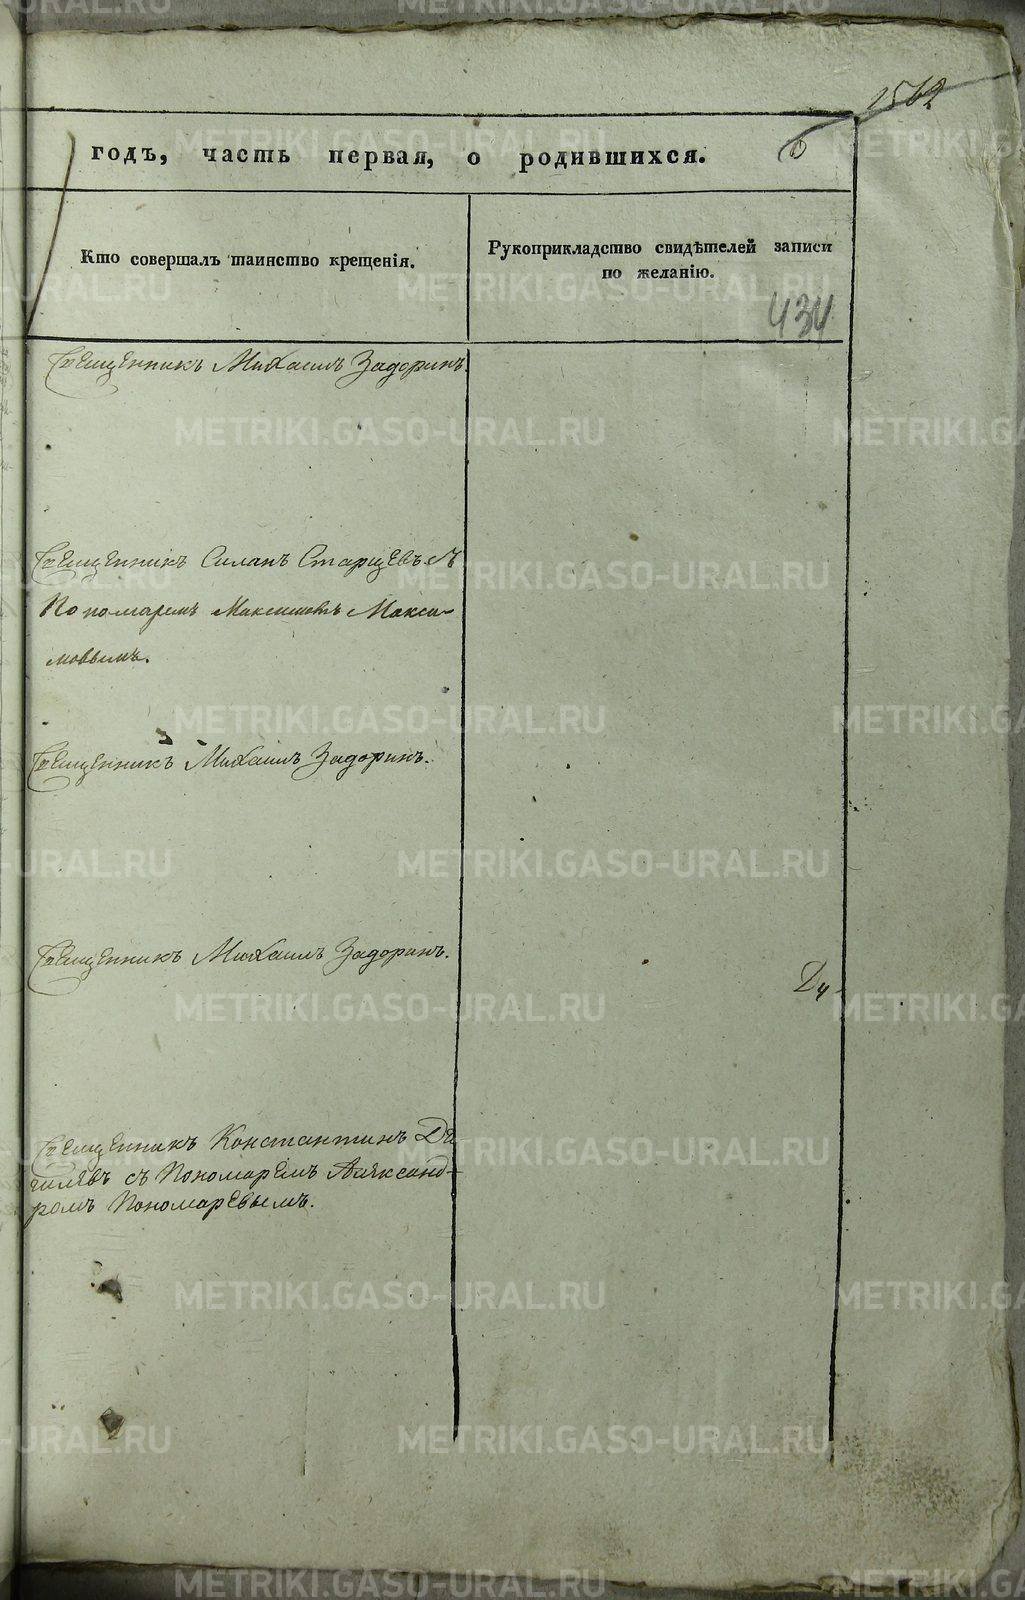 1562
годъ, часть первая, о родившихся.
Кто совершалъ таинство крещенія.
Рукоприкладство свидѣтелей записи
по желанію.
434
Священникъ Михаилъ Задоринъ.
Священникъ Силапъ Старцевъ съ
Пономаремъ Максимомъ Макси-
мовымъ.
Священникъ Михаилъ Задоринъ.
Священникъ Михаилъ Задоринъ.
Священникъ Константинъ
съ Пономаремъ Александ-
ромъ Пономаревымъ.
METRIKI.GASO-URAL.RU